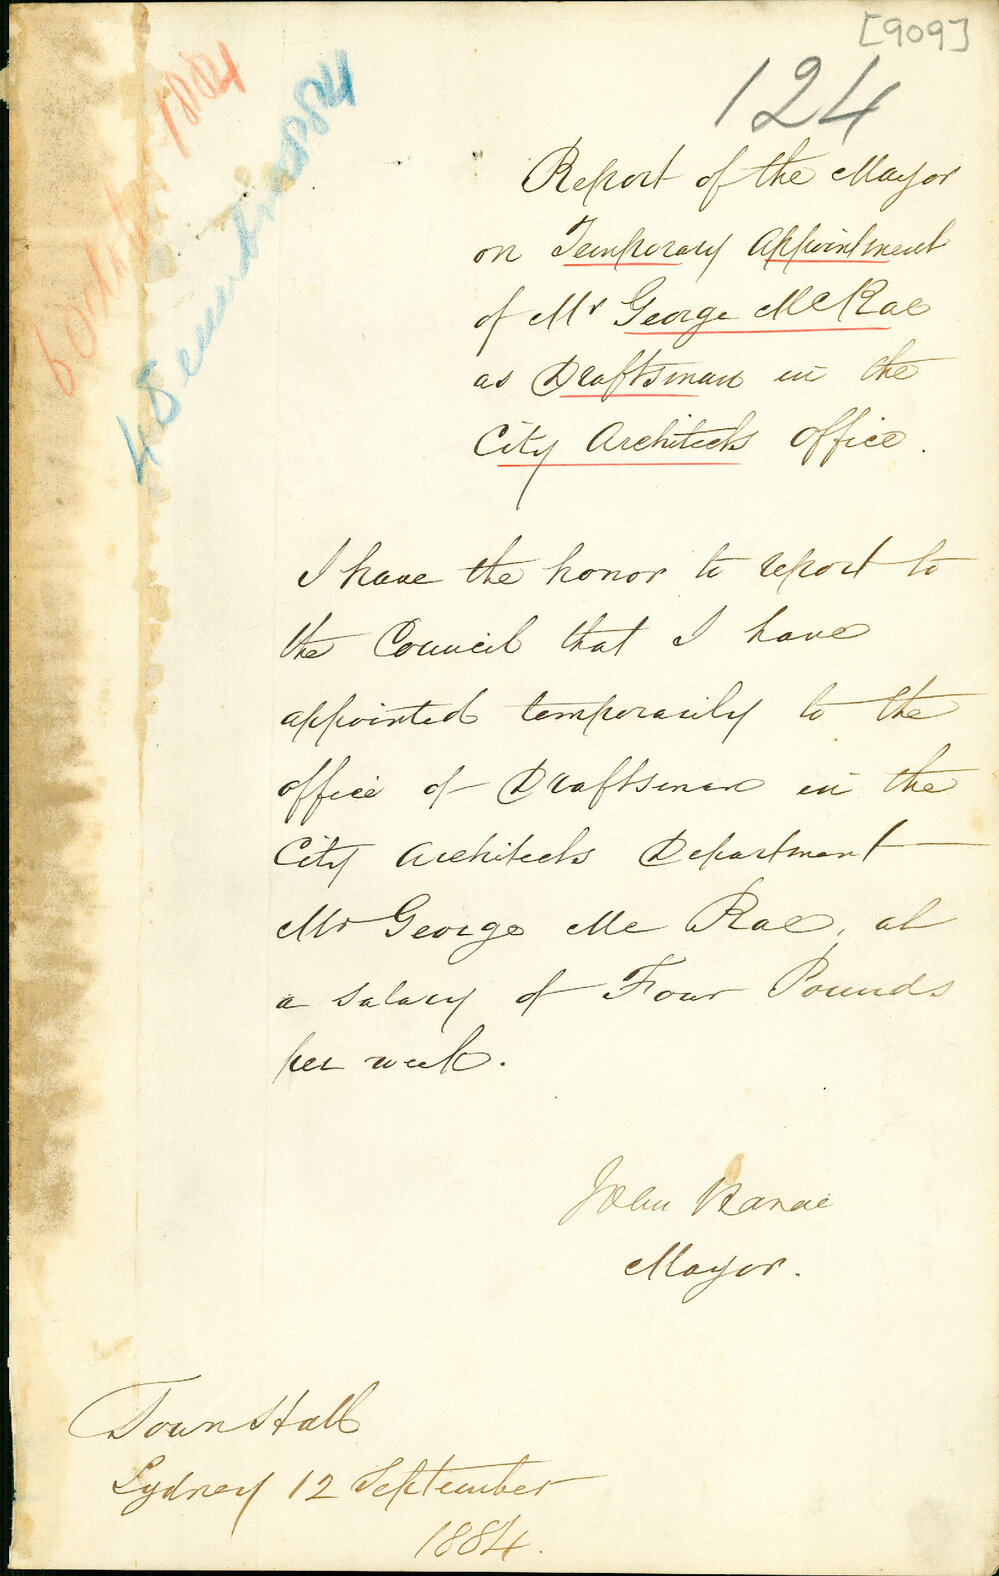 [909]
124
6 October 1884
Report of the Mayor
on Temporary Appointment
of Mr George McRae
as Draftsman in the
City Architects Office.
I have the honor to report to
the Council that I have
appointed temporarily to the
office of Draftsman in the
City Architects Department
Mr George Mc Rae, at
a salary of Four Pounds
per week.
John Hardie
Mayor.
Town Hall
Sydney 12 September
1884.